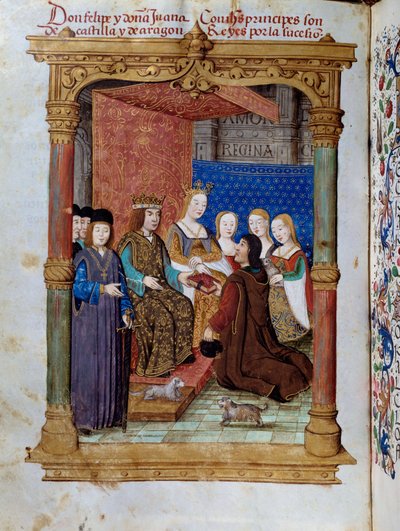 Don felipe y doña Juana
de castilla y de aragon
principes son
Reyes por la sucesiõ
AMOR
REGINA